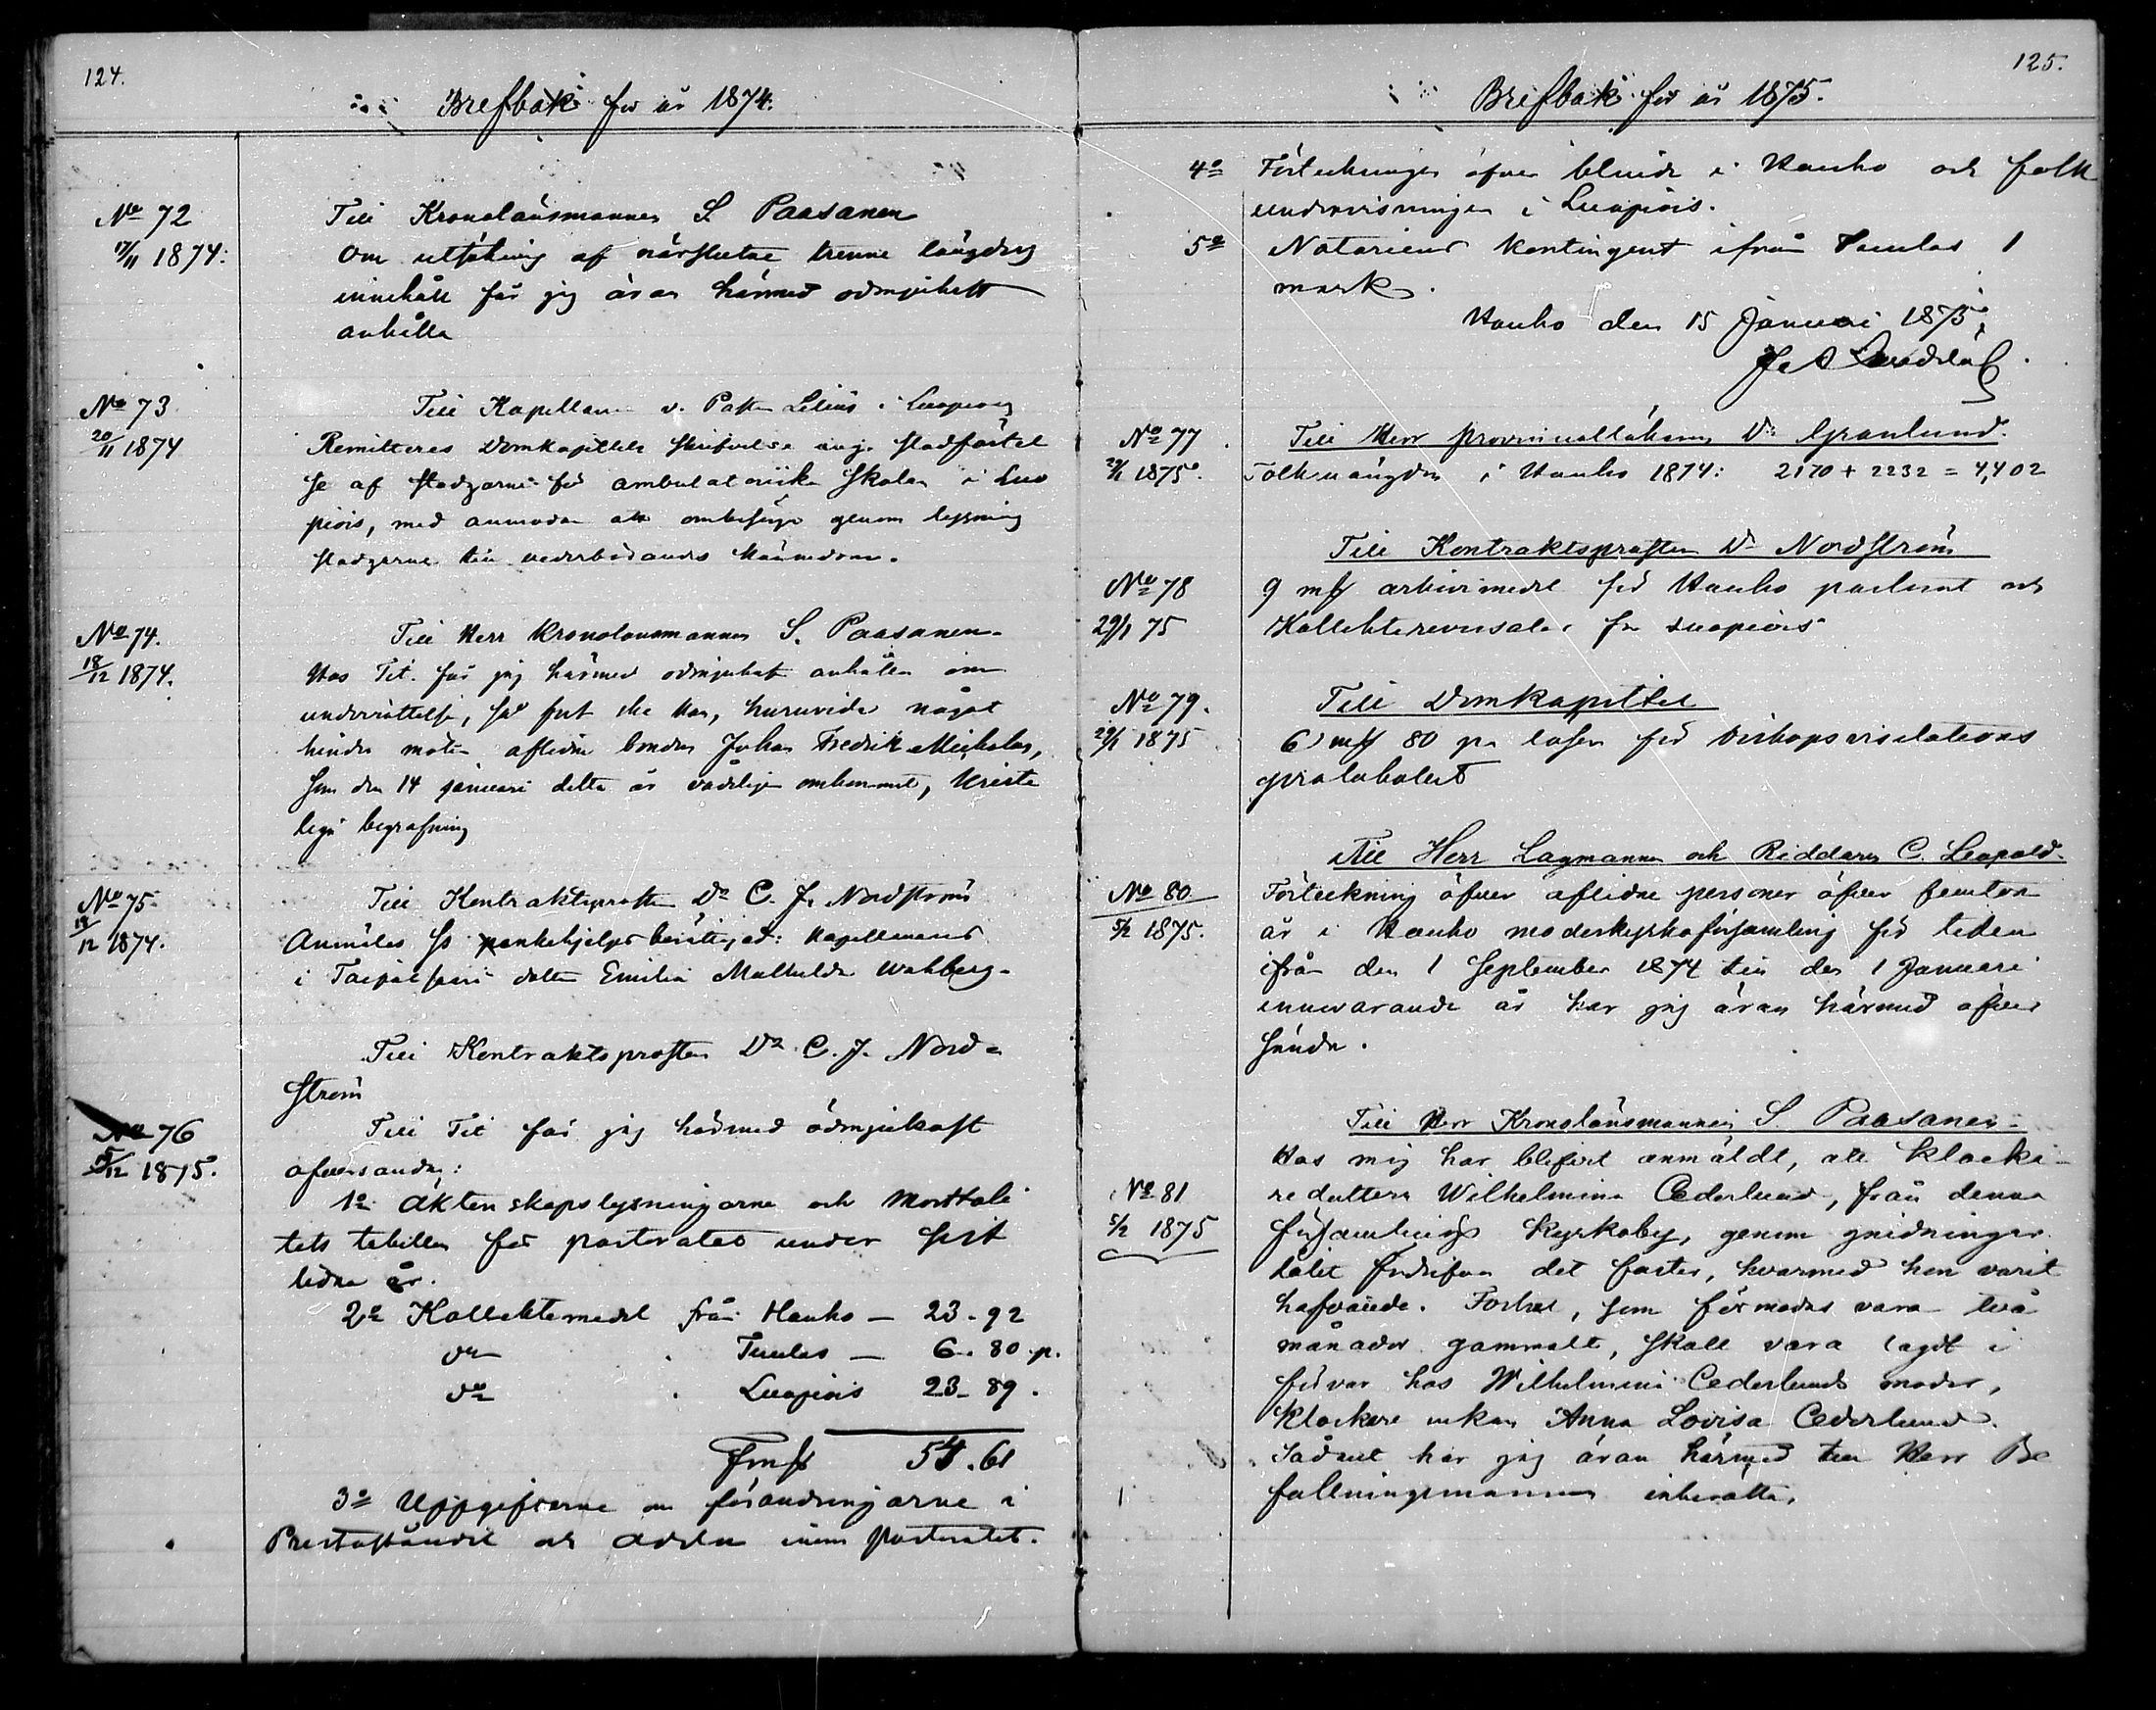 124.
Brefbok för år 1874.
No 72
17/11 1874:
Till Kronolänsmannen S. Paasanen
Om utsökning af närslutne trenne längders
innehåll får jag äran härmed ödmjukast
anhålla
No 73
20/11 1874
Till Kapellanen v. Past Lilius i Luopiois
Remitteras Domkapitlets skrifvelse ang. stadfästel
se af stadgarne för ambulatoriska skolan i Luo
piois, med anmodan att ombesörja genom lysning
stadgarne till vederbörandes kännedom.
No 74.
18/12 1874.
Till Herr Kronolänsmannen S. Paasanen.
Hos Tit. får jag härmed ödmjukast anhålla om
underrättelse, så fort ske kan, huruvida något
hinder möter aflidne bonden Johan Fredrik
som den 14 januari detta år vådligen omkommit, kriste
liga begrafning
No 75
18/12 1874.
Till Kontraktsprosten Dr C. J. Nordström
Anmäles ss enkehjelps berättigad: Kapellanens
i dotter Emilia Mathilda Wahlberg.
Till Kontraktsprosten Dr C. J. Nord=
ström
No 76
15/12 1875.
Till Tit får jag härmed ödmjukast
öfversända:
1o Äktenskapslysningarne och Mortali
tets tabellen för pastoratet under sist
lidne år.
2o Kollektemedel från Hauho — 23. 92
do " Tuulos — 6. 80 p.
do " Luopiois 23. 89.
Fmk 54. 61
3o Uppgifterne om förändringarne i
Presteståndet och Adeln inom pastoratet.
125.
Brefbok för år 1875.
4o Förteckningen öfver blinde i Hauho och folk
undervisningen i Luopiois.
5o Notariens kontingent ifrån Tuulos 1
mark.
Hauho den 15 Januari 1875.
No 77
29/1 1875.
Till Herr provinsialläkaren Dr Granlund.
Folkmängden i Hauho 1874: 2170 + 2232 = 4,402
Till Kontraktsprosten Dr Nordström
No 78
29/1 75
9 mk arkivimedel för Hauho pastorat och
Kollektreversaler fr Luopiois
No 79.
29/1 1875
Till Domkapitlet
6 mk 80 p:i lösen för biskopsvisitations
protokollet
Till Herr Lagmannen och Riddaren C. Leopold.
No 80
5/2 1875.
Förteckning öfver aflidne personer öfver femton
år i Hauho moderkyrkoförsamling för tiden
ifrån den 1 September 1874 till den 1 Januari
innevarande år har jag äran härmed öfver
sända.
Till Herr Kronolänsmannen S. Paasanen.
No 81
5/2 1875
Hos mig har blifvit anmäldt, att klocka=
redottern Wilhelmina Cederlund, från denna
församlings Kyrkoby, genom gnidningar
låtit fördrifva det foster, hvarmed hon varit
hafvande. Fostret, som förmodas vara två
månader gammalt, skall vara lagdt i
förvar hos Wilhelmina Cederlunds moder,
Klockare enkan Anna Lovisa Cederlund.
Sådant har jag äran härmed till Herr Be
fallningsmannen inberätta.